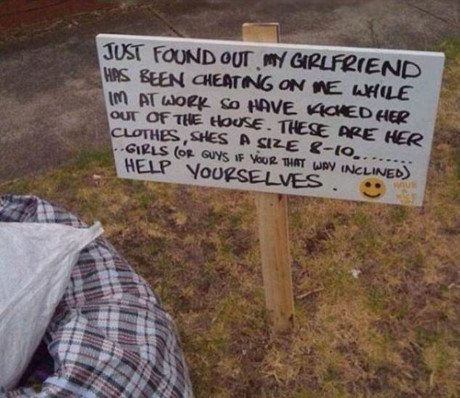 JUST FOUND OUT MY GIRLFRIEND
HAS BEEN CHEATING ON ME WHILE
IM AT WORK SO HAVE KICKED HER
OUT OF THE HOUSE. THESE ARE HER
CLOTHES, SHES A SIZE 8-10........
..GIRLS (OR GUYS IF YOUR THAT WAY INCLINED)
HELP YOURSELVES.